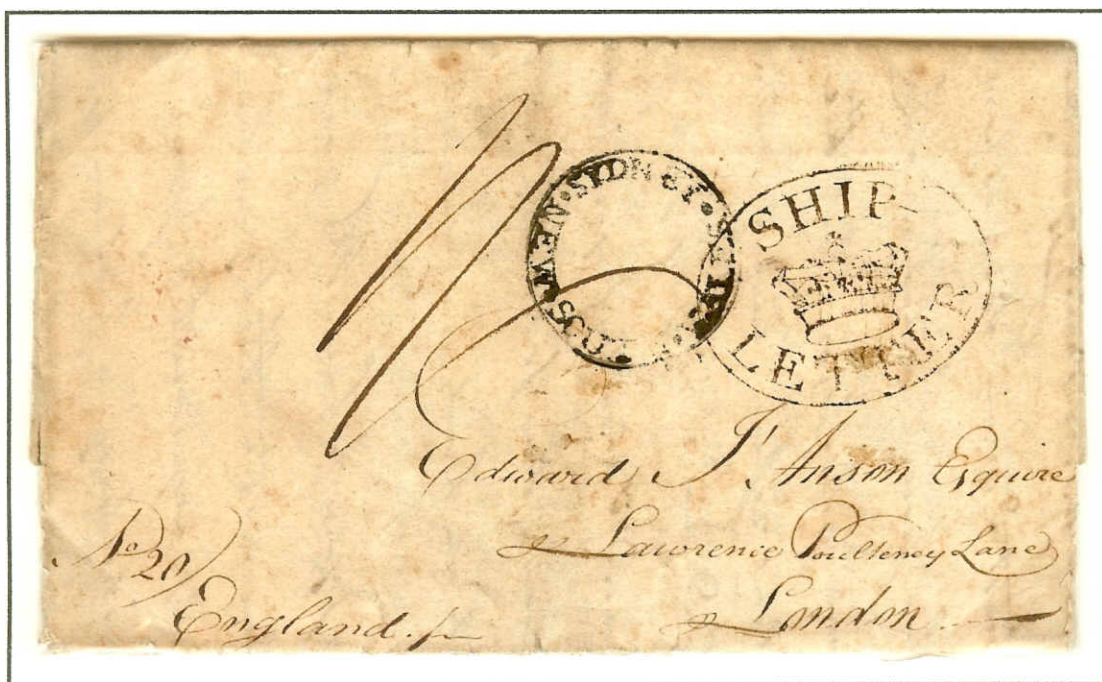 SYDNEY · NEW
SHIP
LETTER
Edward I'Anson Esquire
Lawrence Poulteney Lane
London
No 20
England